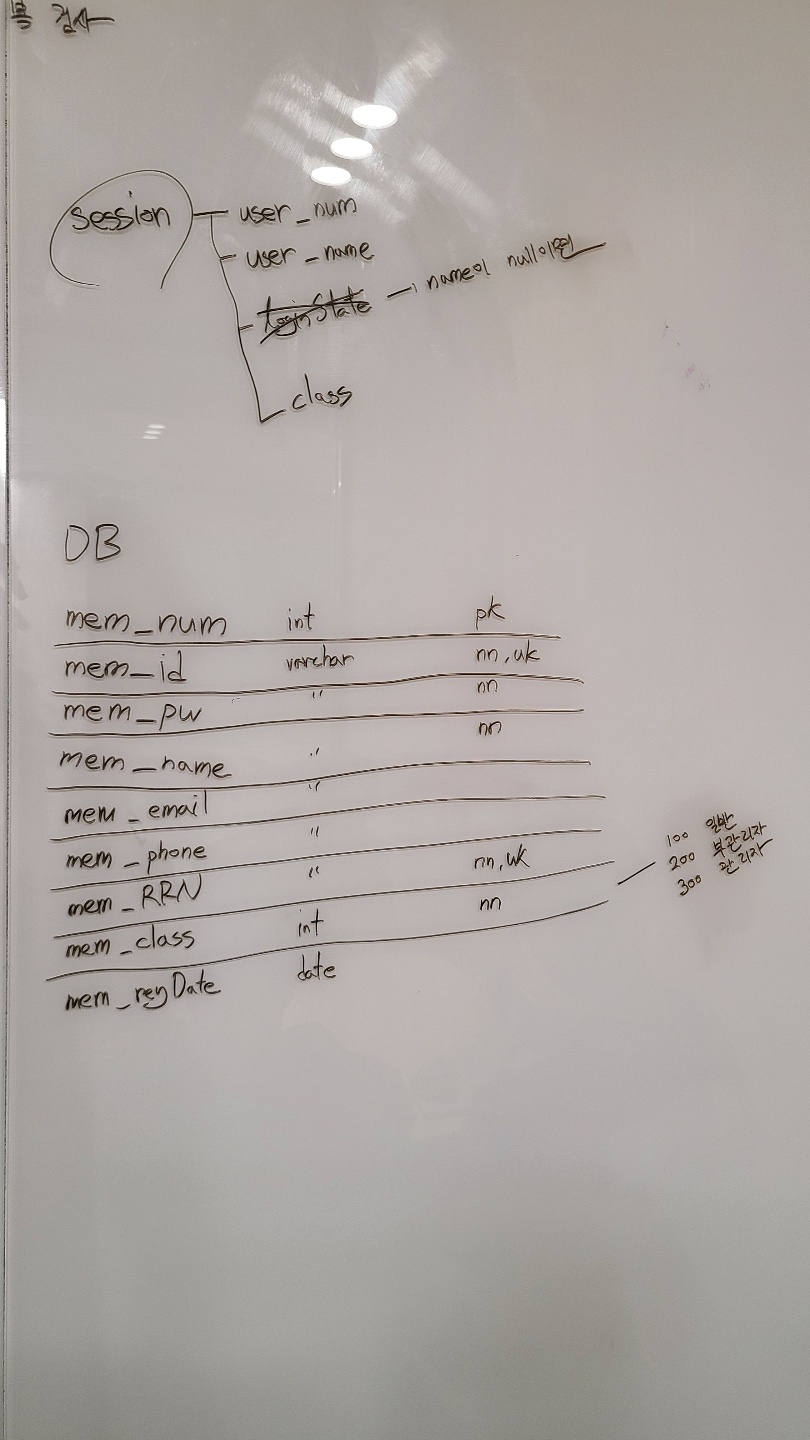 검사
session user_num
user_name
loginState → name이 null이면
class
DB
mem_num int pk
mem_id varchar nn, uk
mem_pw " nn
mem_name " nn
mem_email "
mem_phone "
mem_RRN " nn, uk
mem_class int nn
100 일반
200 부관리자
300 관리자
mem_regDate date